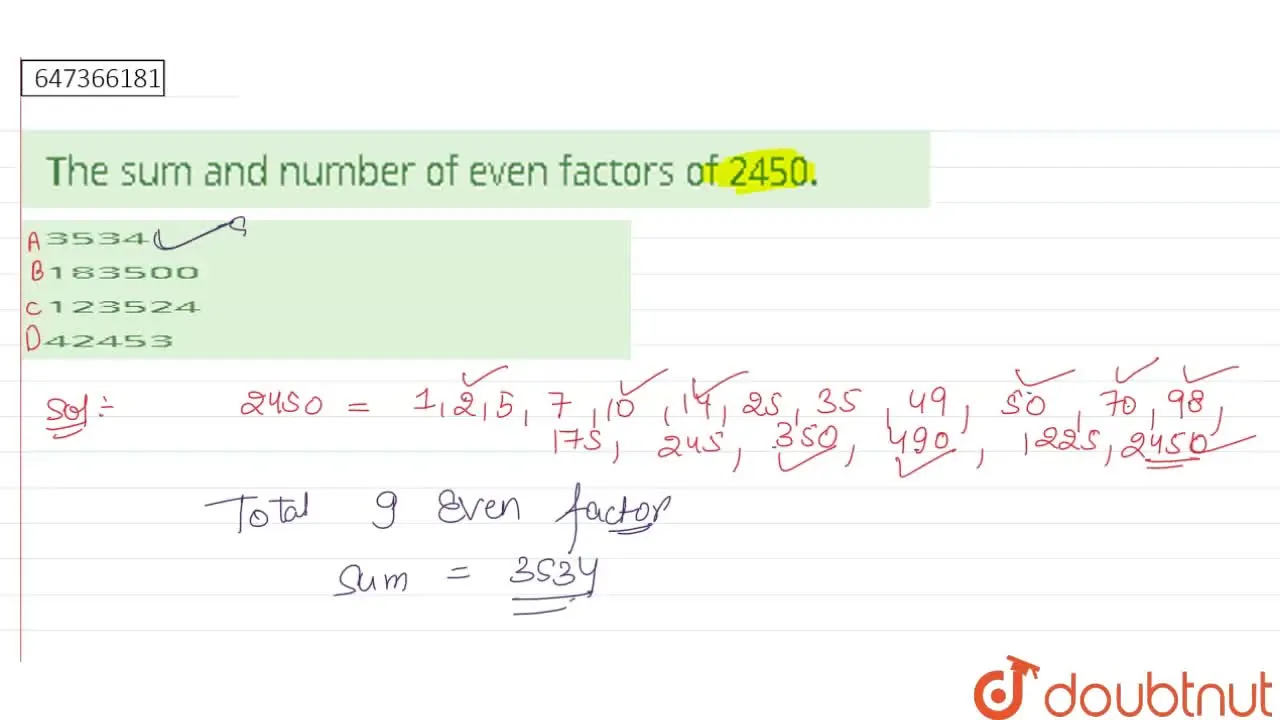 647366181
The sum and number of even factors of 2450.
A 3534
B 183500
C 123524
D 42453
Sol :- 2450 = 1, 2, 5, 7, 10, 14, 25, 35, 49, 50, 70, 98,
175, 245, 350, 490, 1225, 2450
Total 9 Even factor
Sum = 3534
doubtnut